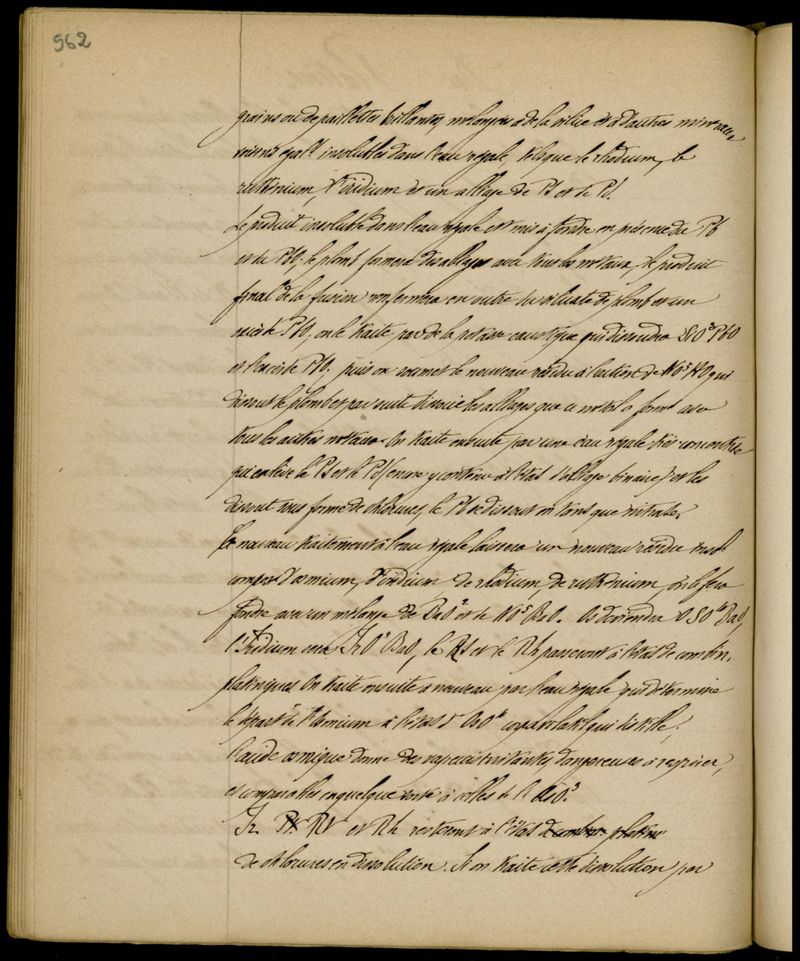 562
grains ou de paillettes brillantes, mélangées à de la silice et à d'autres minéraux
voisins égalt insolubles dans l'eau régale, tels que le rhodium, le
ruthénium, l'iridium et un alliage de Pt et le Pd.
Le produit insoluble dans l'eau régale est mis à fondre en présence de Pb
et de PbO, le plomb formera des alliages avec tous les métaux, le produit
final de la fusion renfermera en outre du silicate de plomb et un
excès de PbO, on le traite par de la potasse caustique qui dissoudra SiO² PbO
et l'excès de PbO. puis on soumet le nouveau résidu à l'action de NO⁵HO qui
dissout le plomb et par suite dissocie les alliages que ce métal a formé avec
tous les autres métaux. On traite ensuite par une eau régale très concentrée
qui enlève le Pt et le Pd (encore y contenu à l'état d'alliage binaire) et les
dissout sous forme de chlorures, le Pb se dissout en tant que nitrate.
Ce nouveau traitement à l'eau régale laissera un nouveau résidu insol.
composé d'osmium, d'iridium de rhodium, de ruthénium, on le fera
fondre avec un mélange de BaO² et de NO⁵BaO. Os deviendra BaO,
l'Iridium sera IrO³ BaO, le Rt et le Rh passeront à l'état de combin.
platiniques. On traite ensuite à nouveau par l'eau régale qui détermine
le départ de l'Osmium à l'état d'OsO⁴ corps volatil qui distille,
l'acide osmique donne des vapeurs irritantes dangereuses à respirer,
et comparables en quelque sorte à celles de l'AsO³.
Ir. Rt et Rh resteront à l'état
de chlorures en dissolution. Si on traite cette dissolution par